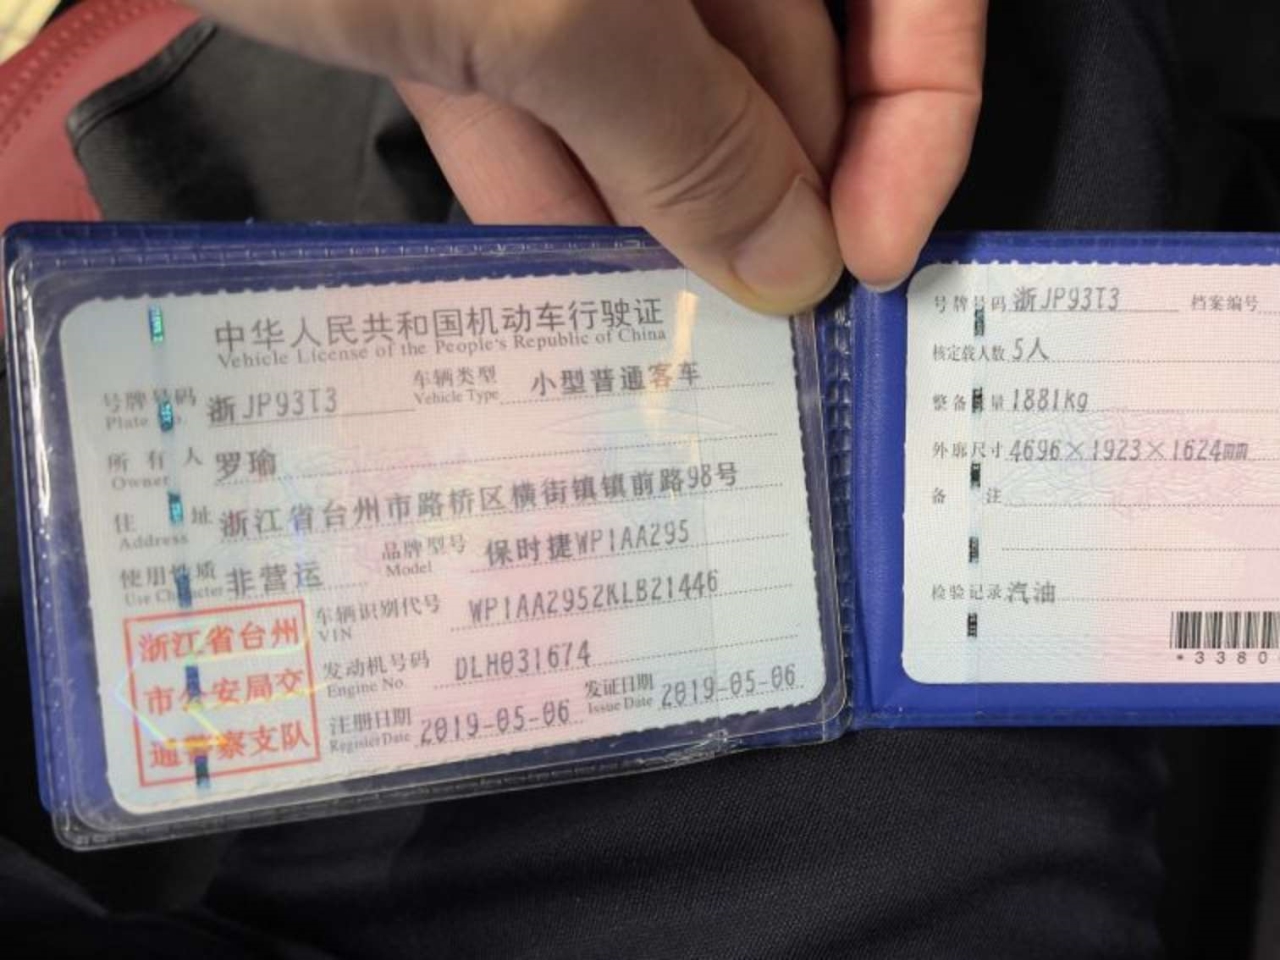 中华人民共和国机动车行驶证
Vehicle License of the People's Republic of China
号牌号码 浙JP93T3 车辆类型 小型普通客车
Plate No. Vehicle Type
所有人 罗瑜
Owner
住址 浙江省台州市路桥区横街镇镇前路98号
Address
使用性质 非营运 品牌型号 保时捷WP1AA295
Use Character Model
车辆识别代号 WP1AA2952KLB21446
VIN
发动机号码 DLH031674
Engine No.
注册日期 2019-05-06 发证日期 2019-05-06
Register Date Issue Date
浙江省台州
市公安局交
通警察支队
号牌号码 浙JP93T3 档案编号
核定载人数 5人
整备质量 1881kg
外廓尺寸 4696×1923×1624mm
备注
检验记录 汽油
*3380